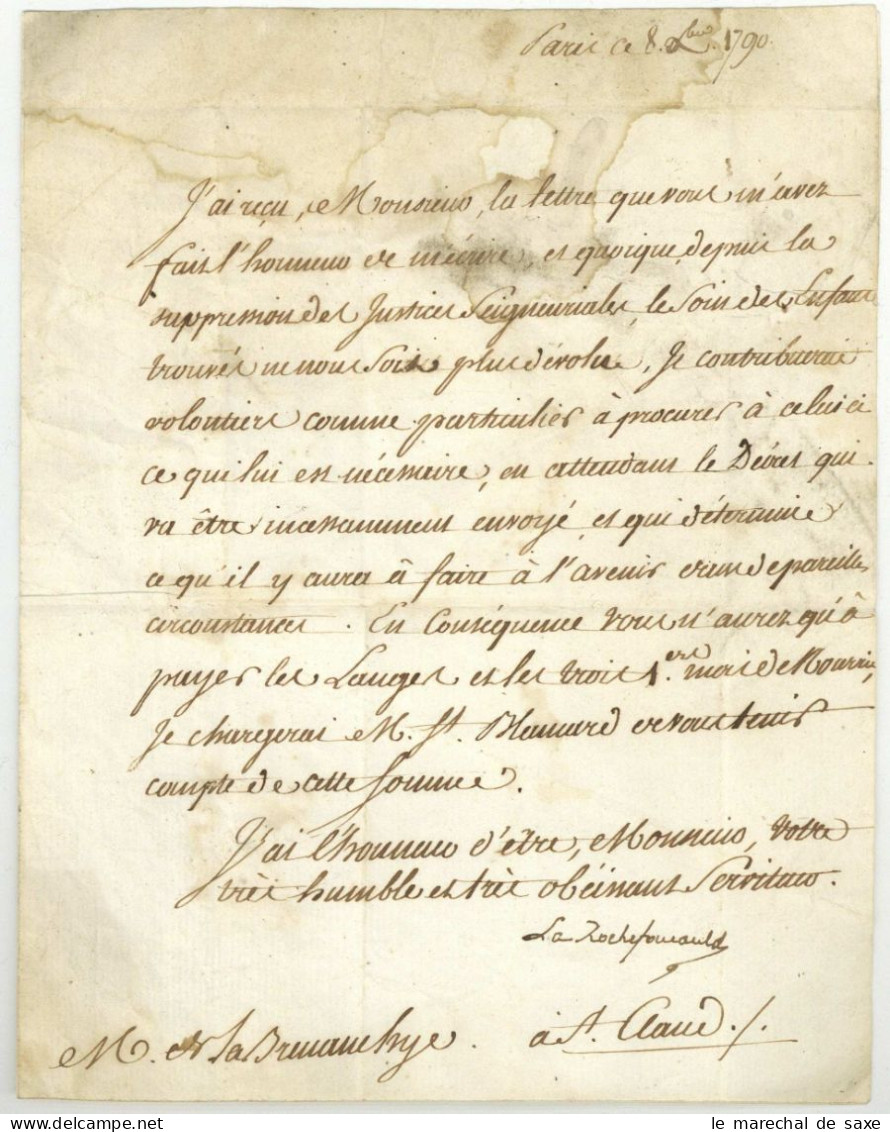 Paris ce 8. Xbre. 1790.
J'ai reçu, Monsieur, la lettre que vous m'avez
fait l'honneur de m'écrire, et quoique depuis la
suppression des Justices Seigneuriales, le Soin des Enfans
trouvés ne nous Soit plus dévolu, Je contribuerai
volontiers comme particulier à procurer à celui ci
ce qui lui est nécessaire, en attendant le Décret qui
va être incessamment envoyé, et qui détermine
ce qu'il y aura à faire à l'avenir dans de pareilles
circonstances. En Conséquence vous n'aurez qu'à
payer les Langes et les trois 1.ers mois de Nourrice,
Je chargerai M. St. de vous tenir
compte de cette Somme.
J'ai l'honneur d'être, Monsieur, votre
très humble et très obéissant Serviteur.
La Rochefoucauld
M. de la à St. Claud ./.
le marechal de saxe